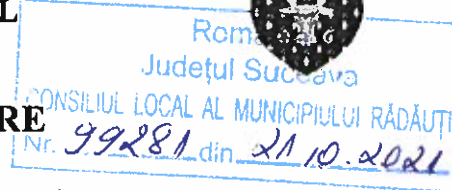 L
România
Județul Suceava
CONSILIUL LOCAL AL MUNICIPIULUI RĂDĂUȚI
RE
Nr. 99281 din 21.10.2021